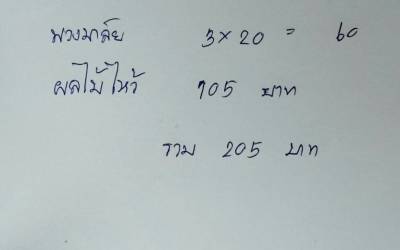 พวงมาลัย 3 × 20 = 60
ผลไม้ไหว้ 105 บาท
รวม 205 บาท